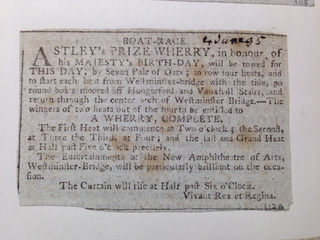 BOAT-RACE. 4 June 95
ASTLEY's PRIZE WHERRY, in honour of
his MAJESTY's BIRTH-DAY, will be rowed for
THIS DAY, by Seven Pair of Oars; to row four heats, and
to start each heat from Westminster-bridge with the tide; go
round boats moored off Hungerford and Vauxhall Stairs, and
return through the center arch of Westminster Bridge.—The
winners of two heats out of the four to be entitled to
A WHERRY, COMPLETE.
The First Heat will commence at Two o'clock; the Second,
at Three; the Third, at Four; and the last and Grand Heat
at Half past Five o'clock precisely.
The Entertainments at the New Amphitheatre of Arts,
Westminster-Bridge, will be particularly brilliant on the occa-
sion.
The Curtain will rise at Half past Six o'Clock.
Vivant Rex et Regina.